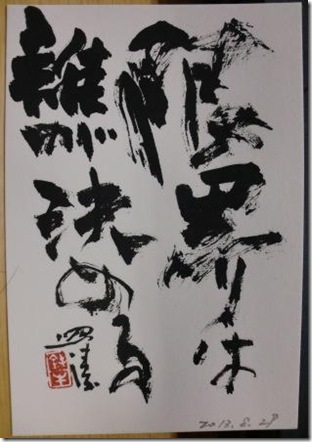 限界は
誰が決める
2013.8.29